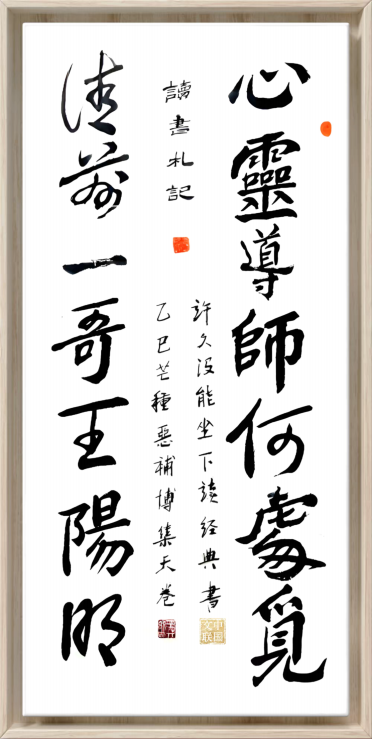 心靈導師何處覓
清前一哥王陽明
讀書札記
許久没能坐下讀經典書
乙巳芒種惡補博集天卷